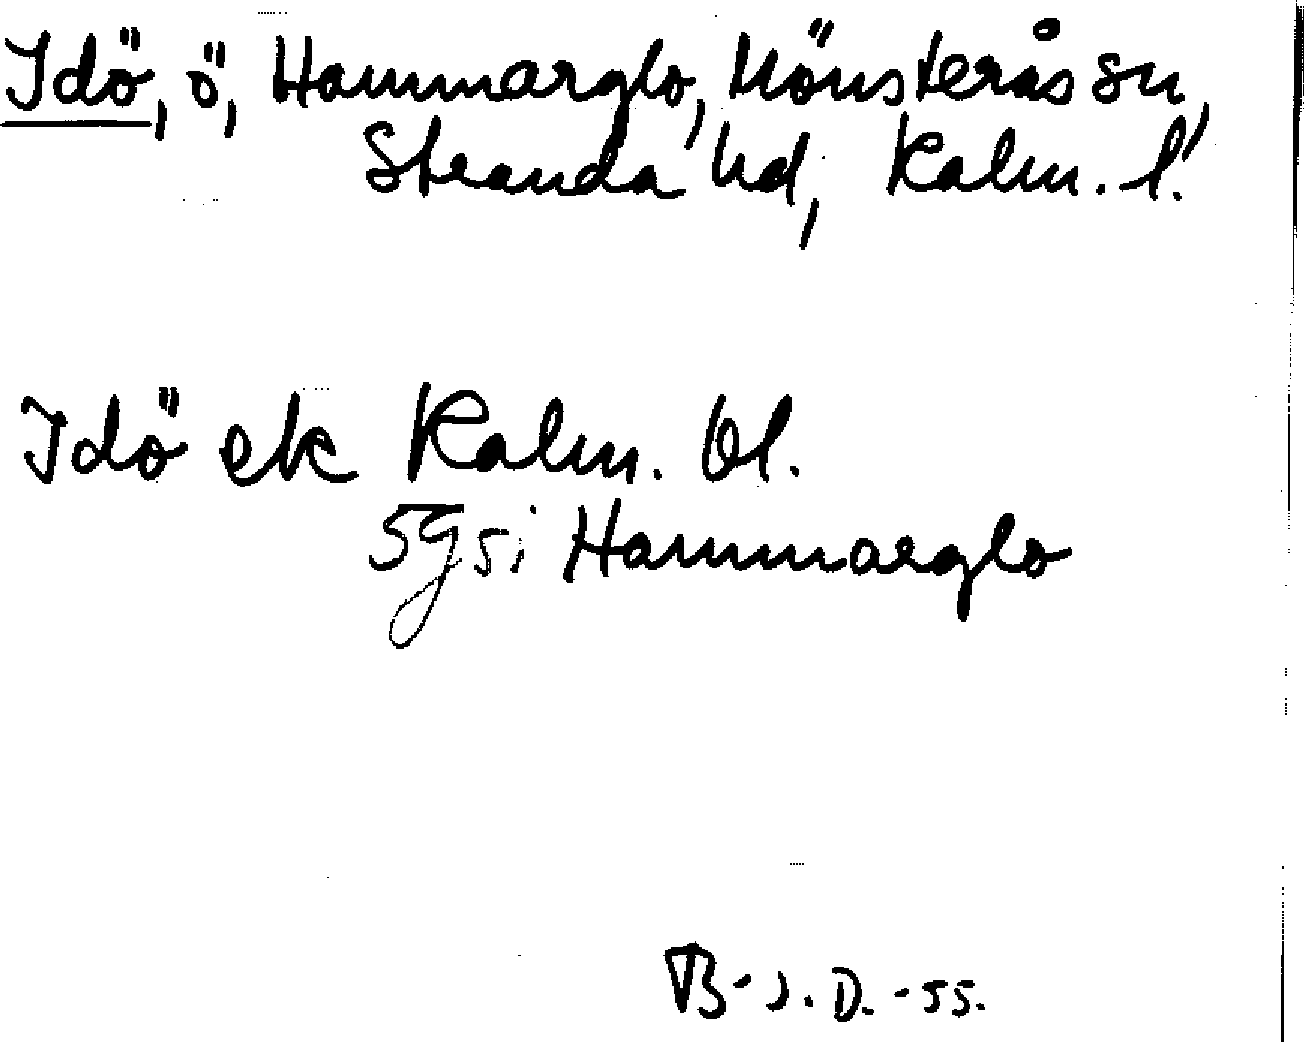 Idö, ö, Hammarglo, Mönsterås sn,
Stranda hd, Kalm. l.
Idö ek Kalm. bl.
5g5i Hammarglo
B-J.D.-55.